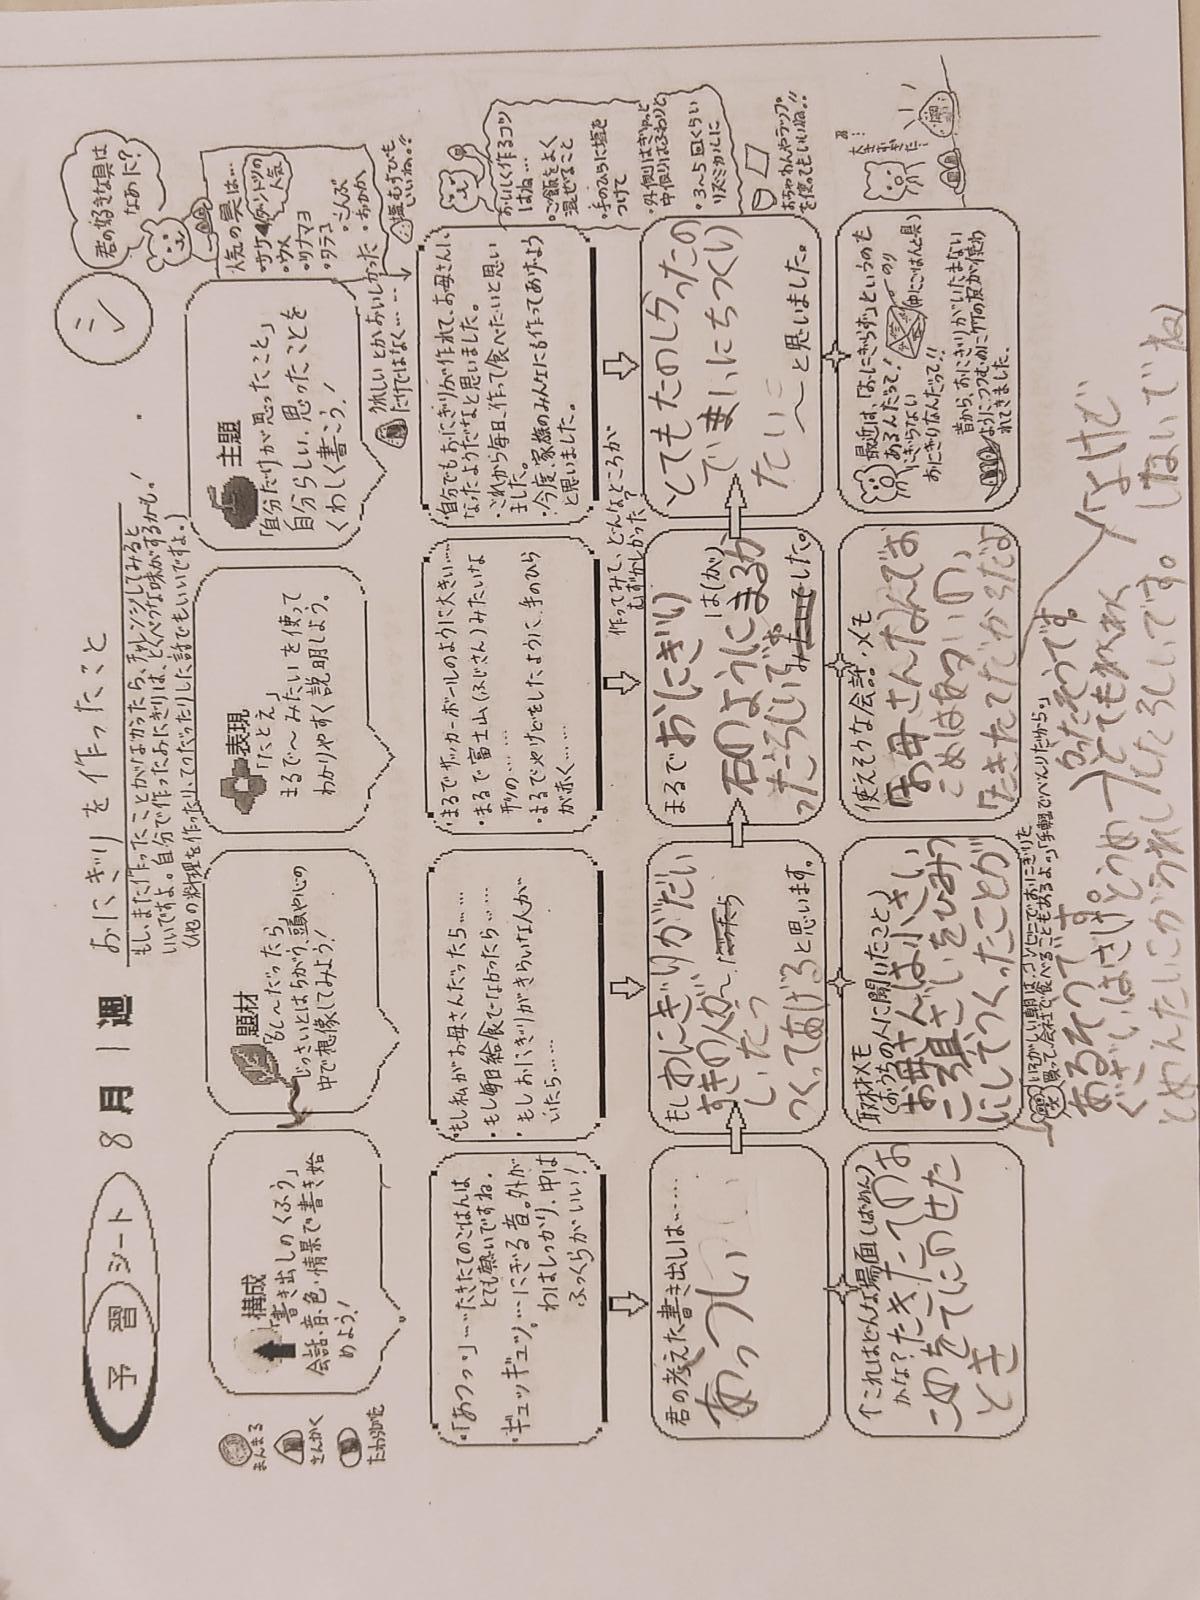 予習シート 8月1週 おにぎりを作ったこと
もし、まだ作ったことがなかったら、チャレンジしてみると
いいですよ。自分で作ったおにぎりは、とくべつな味がするかも。
(他の料理を作ったり、てつだったりした話でもいいですよ。)
シ
君の好きな具は
なあに?
人気の具は…
・サケ
・ウメ
・ツナマヨ
・タラコ
・こんぶ
・おかか
塩むすびも
いいね。!!
まんまる
さんかく
たわら
構成
「書き出しのくふう」
会話・音・色・情景で書き始
めよう!
題材
「もし〜だったら」
じっさいとはちがう、頭や心の
中で想像してみよう!
表現
「たとえ」
まるで〜みたいを使って
わかりやすく説明しよう。
主題
「自分だけが思ったこと」
自分らしい、思ったことを
くわしく書こう!
楽しいとかおいしかった
だけではなく……
・「あつっ。」……たきたてのごはんは
とても熱いですね。
・ギュッギュッ。……にぎる音。外が
わはしっかり、中は
ふっくらがいい!
・もし私がお母さんだったら……
・もし毎日給食でなかったら……
・もしおにぎりがきらいな人が
いたら……
・まるでサッカーボールのように大きい……
・まるで富士山(ふじさん)みたいな
形の……
・まるでやけどをしたように、手のひら
が赤く……
・自分でもおにぎりが作れて、お母さんに
なったようだなと思いました。
・これから毎日、作って食べたいと思い
ました。
・今度、家族のみんなにも作ってあげよう
と思いました。
おいしく作るコツ
はね…
・ご飯をよく
混ぜること
・手のひらに塩を
つけて
・外側はぎゅっと
中側はふわりと
・3〜5回くらい
リズミカルに
おちゃわんやラップ
を使ってもいいね。!!
作ってみて、どんなところが
むずかしかった?
君の考えた書き出しは……
あっつい
もしおにぎりがだい
すきの人が〜だったら
いたっ
つくってあげると思います。
まるでおにぎり
は(が)
石のようにまるか
ったらしいです
みたいでした。
とてもたのしかったの
でまいにちつくり
たい
〜と思いました。
(これはどんな場面(ばめん)
かな?)たきたてのお
こめをてにのせた
とき
取材メモ
(おうちの人に聞いたこと)
お母さんは小さい
ころ
にしてつくったことが
あるそうです
使えそうな会話・メモ
お母さんなんでお
こめはあついの、
たきたてだからだよ
最近は、「おにぎらず」というのも
あるんだって!
にぎらない
おにぎりなんだって!!
のり
(中にごはんと具)
昔から、おにぎりがいたまない
ように、つつむのに竹の皮が使わ
れてきました。
いそがしい朝は、コンビニでおにぎりを
買って会社で食べることもあるよ。「手軽でべんりだから。」